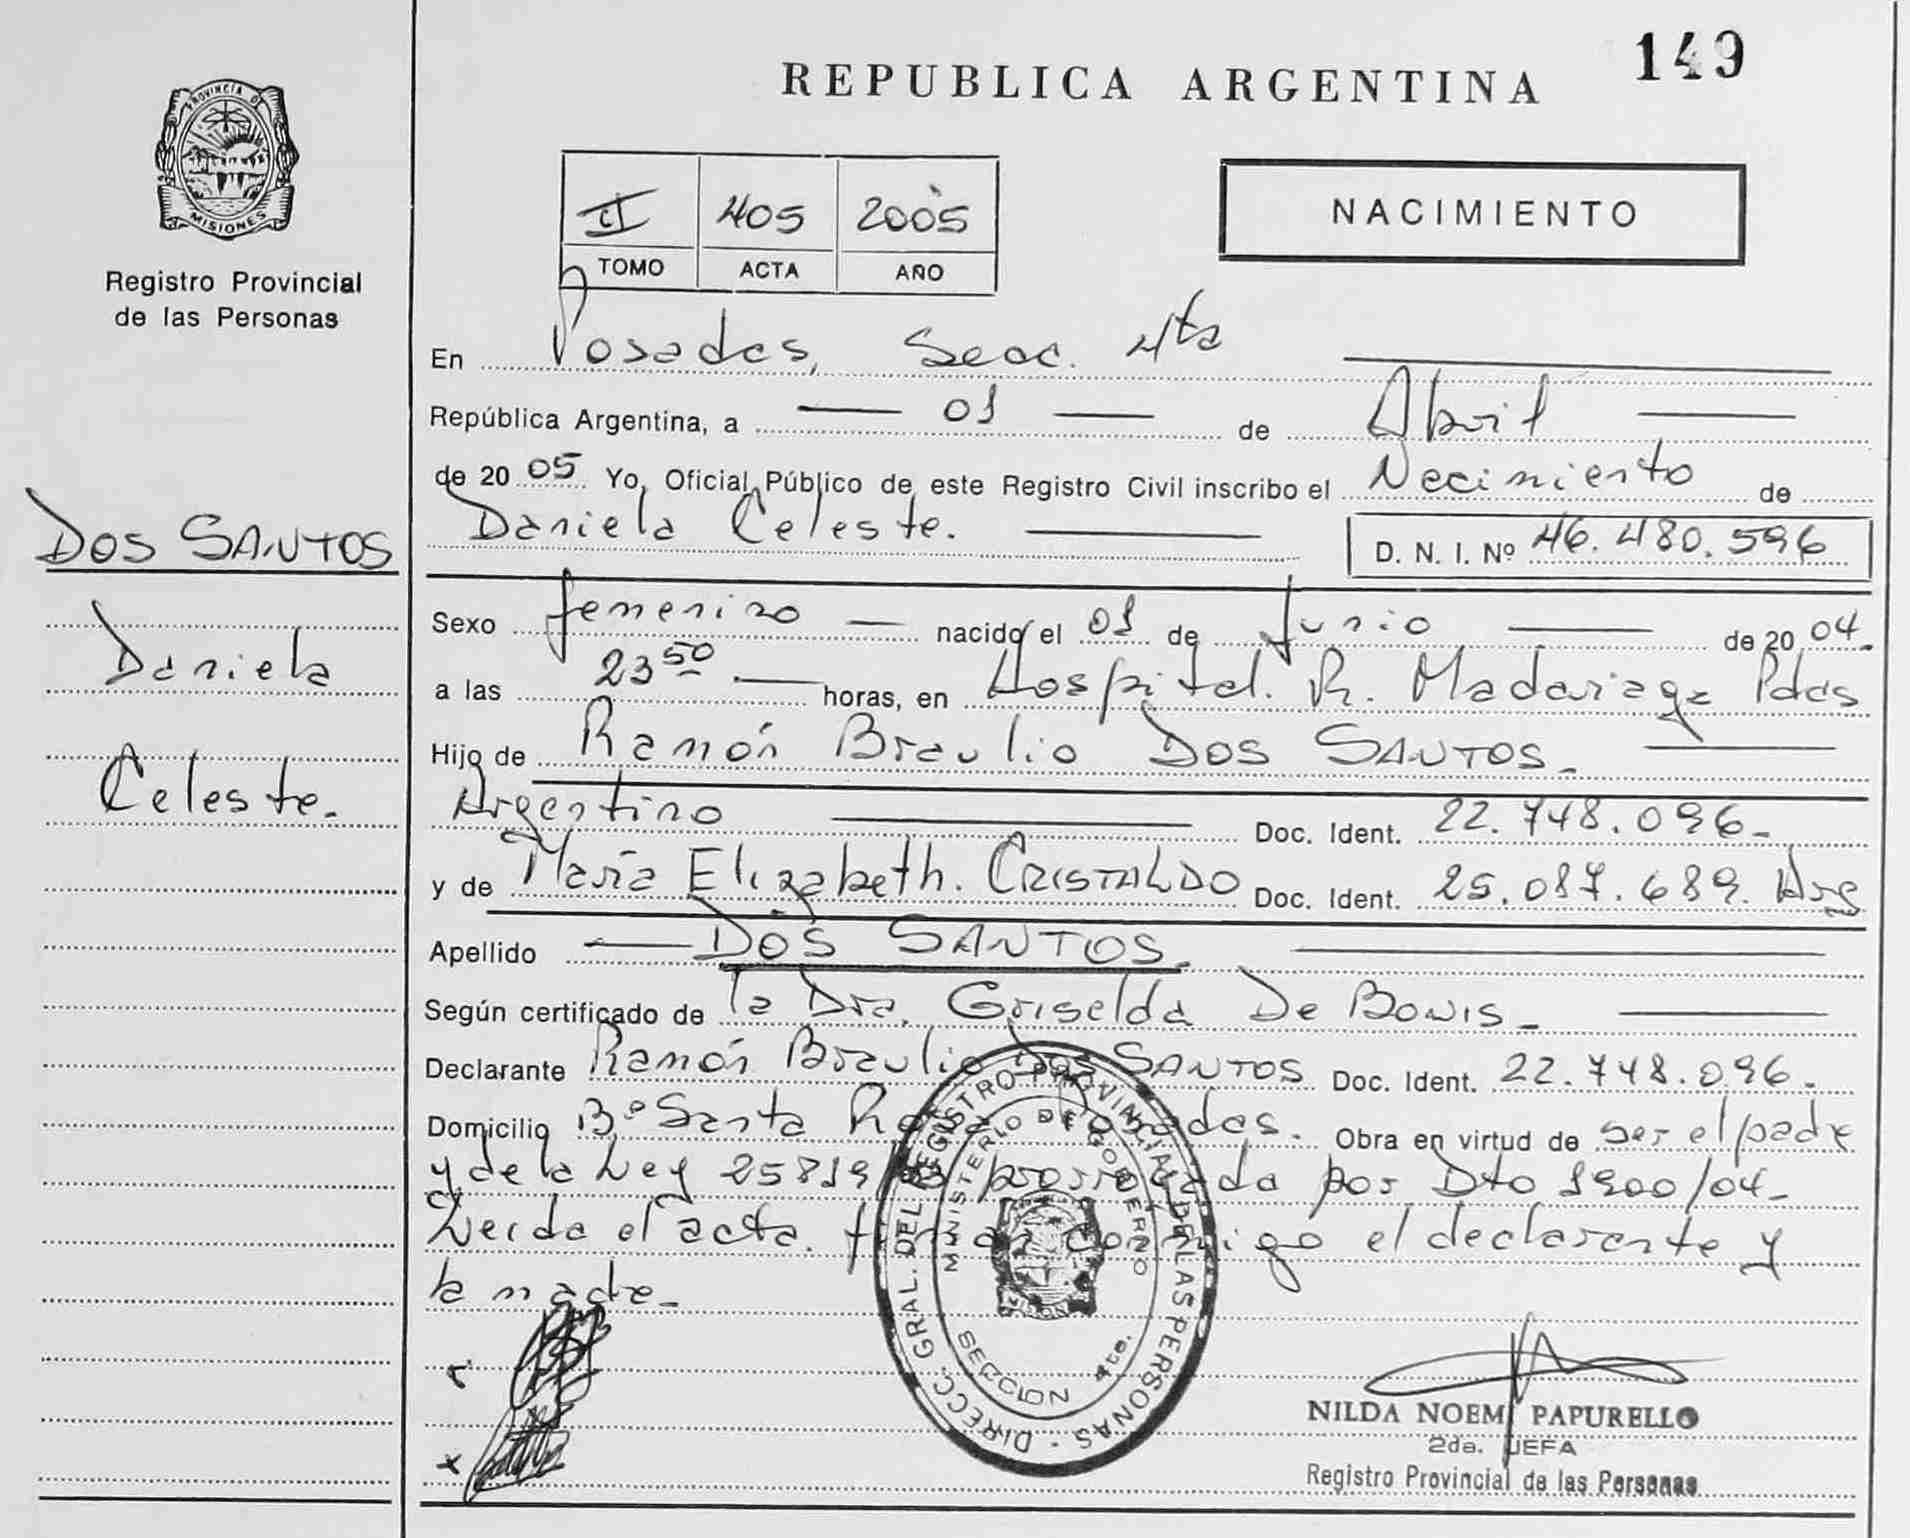 149
REPUBLICA ARGENTINA
PROVINCIA DE
MISIONES
Registro Provincial
de las Personas
II 405 2005
TOMO ACTA AÑO
NACIMIENTO
En Posadas, Secc. 4ta
República Argentina, a 01 de Abril
de 20 05 Yo, Oficial Público de este Registro Civil inscribo el Nacimiento de
Daniela Celeste. D. N. I. Nº 46.480.596
DOS SANTOS
Daniela
Celeste.
Sexo femenino nacido el 01 de Junio de 20 04.
a las 23 50 horas, en Hospital. R. Madariaga Pdas
Hijo de Ramón Braulio DOS SANTOS.
Argentino Doc. Ident. 22.748.096.
y de María Elizabeth. CRISTALDO Doc. Ident. 25.087.689. Arg
Apellido DOS SANTOS.
Según certificado de la Dra. Griselda De Bonis.
Declarante Ramón Braulio Dos SANTOS Doc. Ident. 22.748.096.
Domicilio Bº Santa Rosa Posadas. Obra en virtud de ser el padre
y de la Ley 25819/03 prorrogada por Dto 1900/04.
Leida el acta. firman conmigo el declarante y
la madre.
DIRECC. GRAL. DEL REGISTRO PROVINCIAL DE LAS PERSONAS
MINISTERIO DE GOBIERNO
SECCION 4ta.
NILDA NOEMI PAPURELLO
2da. JEFA
Registro Provincial de las Personas